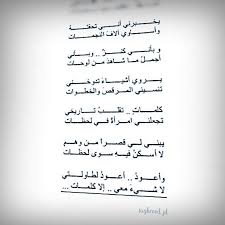 يخبرني أني تحفته
وأساوي آلاف النجمات
و بأني كنز .. وبأني
أجمل ما شاهد من لوحات
يروي أشياء تدوخني
تنسيني المرقص والخطوات
كلمات .. تقلب تاريخي
تجعلني امرأة في لحظات
يبني لي قصرا من وهم
لا أسكن فيه سوى لحظات
وأعود .. أعود لطاولتي
لا شيء معي .. إلا كلمات ...